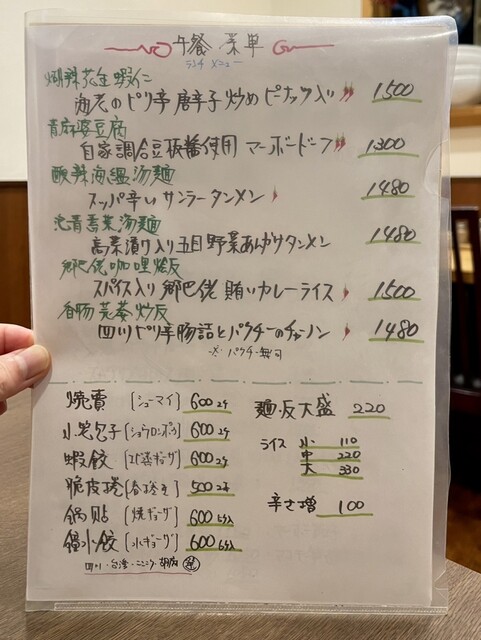 午餐 菜単
ランチ メニュー
海老のピリ辛 唐辛子炒め ピーナッツ入り 1500
青麻婆豆腐
自家調合豆板醤使用 マーボードーフ 1300
酸辣湯麺
スッパ辛い サンラータンメン 1480
高菜漬け入り五目野菜あんかけタンメン 1480
郷巴佬咖哩飯
スパイス入り 郷巴佬 賄いカレーライス 1500
香腸芫荽炒反
四川ピリ辛腸詰とパクチーのチャーハン 1480
燒賣 [シューマイ] 600 2ケ
小笼包子 [ショウロンポウ] 600 2ケ
蝦餃 [エビ蒸ギョーザ] 600 2ケ
脆皮捲 [春捲き] 500 2本
鍋貼 [焼ギョーザ] 600 5ケ入
水餃 [水ギョーザ] 600 6ケ入
四川・台湾・
麺・反 大盛 220
ライス 小 110
中 220
大 330
辛さ増 100